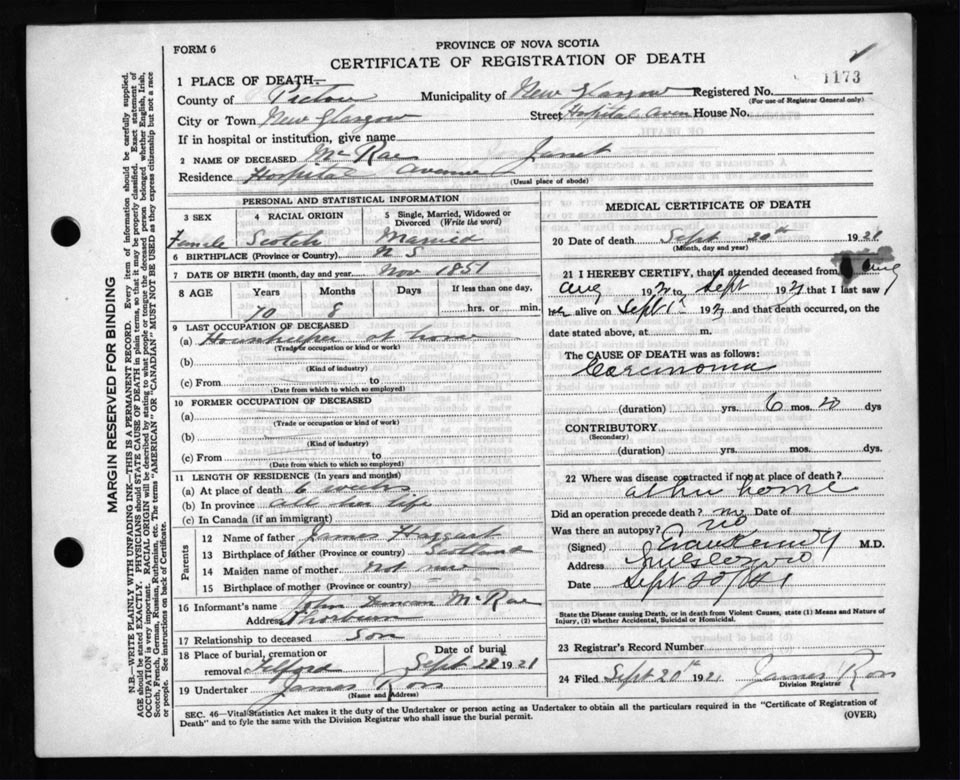 FORM 6
PROVINCE OF NOVA SCOTIA
CERTIFICATE OF REGISTRATION OF DEATH
1173
1 PLACE OF DEATH—
County of Pictou Municipality of New Glasgow Registered No.
(For use of Registrar General only)
City or Town New Glasgow Street Hospital Aven House No.
If in hospital or institution, give name
2 NAME OF DECEASED McRae Janet
Residence Hospital Avenue
(Usual place of abode)
PERSONAL AND STATISTICAL INFORMATION
3 SEX 4 RACIAL ORIGIN 5 Single, Married, Widowed or Divorced (Write the word)
Female Scotch Married
6 BIRTHPLACE (Province or Country) N S
7 DATE OF BIRTH (month, day and year) Nov 1851
8 AGE Years Months Days If less than one day,
70 8 hrs. or min.
9 LAST OCCUPATION OF DECEASED
(a) at home
(Trade or occupation or kind or work)
(b)
(Kind of industry)
(c) From to
(Date from which to which so employed)
10 FORMER OCCUPATION OF DECEASED
(a)
(Trade or occupation or kind of work)
(b)
(Kind of industry)
(c) From to
(Date from which to which so employed)
11 LENGTH OF RESIDENCE (In years and months)
(a) At place of death 6 weeks
(b) In province all her life
(c) In Canada (if an immigrant)
Parents
12 Name of father James Haggart
13 Birthplace of father (Province or country) Scotland
14 Maiden name of mother Not
15 Birthplace of mother (Province or country)
16 Informant's name John Duncan McRae
Address Thorburn
17 Relationship to deceased Son
18 Place of burial, cremation or removal Telford Date of burial Sept 22 1921
19 Undertaker James Ross
(Name and Address)
MEDICAL CERTIFICATE OF DEATH
20 Date of death Sept 20th 1921
(Month, day and year)
21 I HEREBY CERTIFY, that I attended deceased from Aug
Aug 192 to Sept 192 that I last saw
alive on Sept 192 and that death occurred, on the
date stated above, at m.
The CAUSE OF DEATH was as follows:
Carcinoma
(duration) yrs. 6 mos. 20 dys
CONTRIBUTORY
(Secondary)
(duration) yrs. mos. dys
22 Where was disease contracted if not at place of death?
at her home
Did an operation precede death? no Date of
Was there an autopsy? no
(Signed) M.D.
Address
Date Sept 20
State the Disease causing Death, or in death from Violent Causes, state (1) Means and Nature of Injury, (2) whether Accidental, Suicidal or Homicidal.
23 Registrar's Record Number
24 Filed Sept 20th 1921 James Ross
Division Registrar
SEC. 46—Vital Statistics Act makes it the duty of the Undertaker or person acting as Undertaker to obtain all the particulars required in the "Certificate of Registration of
Death" and to fyle the same with the Division Registrar who shall issue the burial permit. (OVER)
MARGIN RESERVED FOR BINDING
N.B.—WRITE PLAINLY WITH UNFADING INK—THIS IS A PERMANENT RECORD. Every item of information should be carefully supplied.
AGE should be stated EXACTLY. PHYSICIANS should STATE CAUSE OF DEATH in plain terms, so that it may be properly classified. Exact statement of
OCCUPATION is very important. RACIAL ORIGIN will be described by stating to what people or tongue the deceased person belonged whether English, Irish,
Scotch, French, German, Russian, Ruthenian, etc. The terms "AMERICAN" or "CANADIAN" MUST NOT BE USED as they express citizenship but not a race
or people. See instructions on back of Certificate.